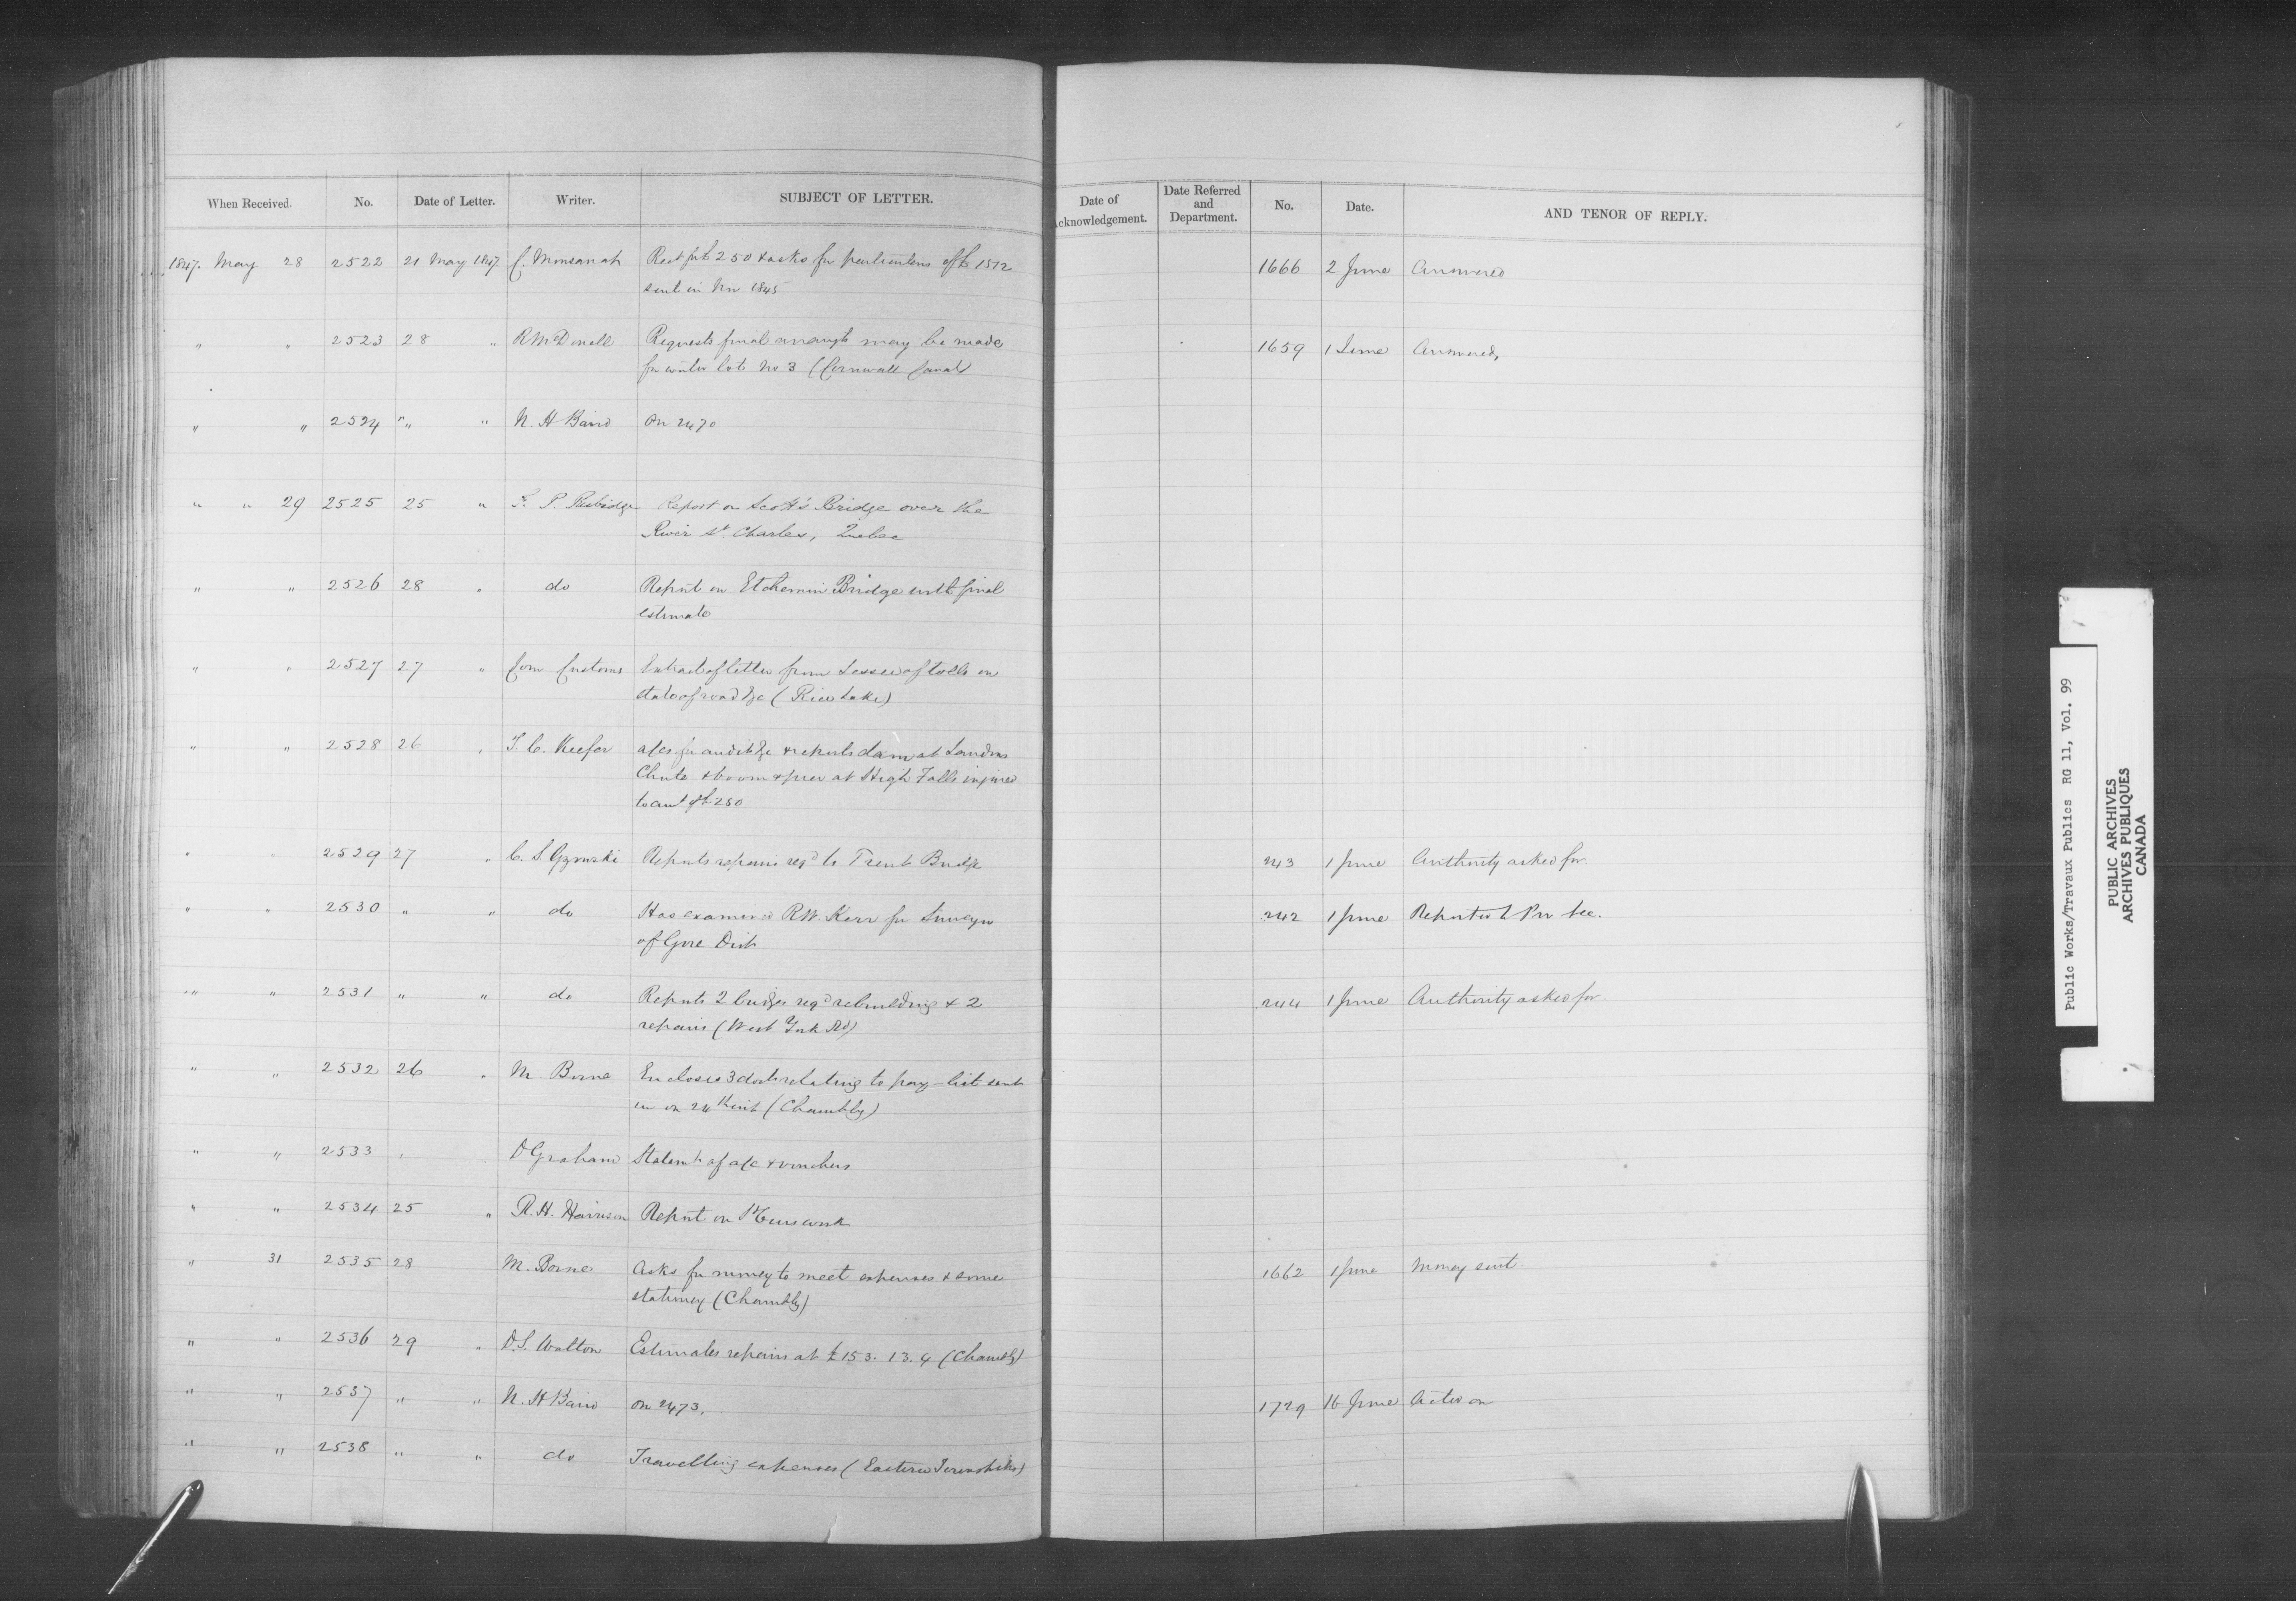 When Received. No. Date of Letter. Writer. SUBJECT OF LETTER. Date of Acknowledgement. Date Referred and Department. No. Date. AND TENOR OF REPLY.
1847. May 28 2522 21 May 1847 C. Monsanah Rect for £250 & asks for particulars of £1512 1666 2 June Answered
sent in Nov 1845
" " 2523 28 " R McDonell Requests final arrangts may be made 1659 1 June Answered,
for water lot No 3 (Cornwall Canal
" " 2524 " " N. H Baird On 2470
" " 29 2525 25 " F. P. Rubidge Report on Scott's Bridge over the
River St. Charles, Quebec
" " 2526 28 " do Report on Etchemin Bridge with final
estimate
" " 2527 27 " Com Customs Extract of letter from Lessee of tolls on
state of road &c (Rice Lake)
" " 2528 26 " T. C. Keefer a/cs for audit &c & reports dam at
Chute & boom & pier at High Falls injured
to amt of £250
" " 2529 27 " C. S. Gzowski Reports repairs reqd to Trent Bridge 243 1 June Authority asked for.
" " 2530 " " do Has examined R W. Kerr for Surveyor 242 1 June Reported to Prov Sec.
of Gore Dist
" " 2531 " " do Reports 2 bridges reqd rebuilding & 2 244 1 June Authority asked for.
repairs (West York Rd)
" " 2532 26 " M Borne Encloses 3 docts relating to pay-list sent
in on 24th inst (Chambly)
" " 2533 " D Graham Statemt of a/c & vouchers
" " 2534 25 " R. H. Harrison Report on work
" 31 2535 28 M. Borne Asks for money to meet expenses & some 1662 1 June Money sent.
stationery (Chambly)
" " 2536 29 " D. S. Walton Estimates repairs at £153. 13. 4 (Chambly)
" " 2537 " " N. H Baird On 2473. 1729 16 June Acted on
" " 2538 " " do Travelling expenses (Eastern Townships)
Public Works/Travaux Publics RG 11, Vol. 99
PUBLIC ARCHIVES
ARCHIVES PUBLIQUES
CANADA